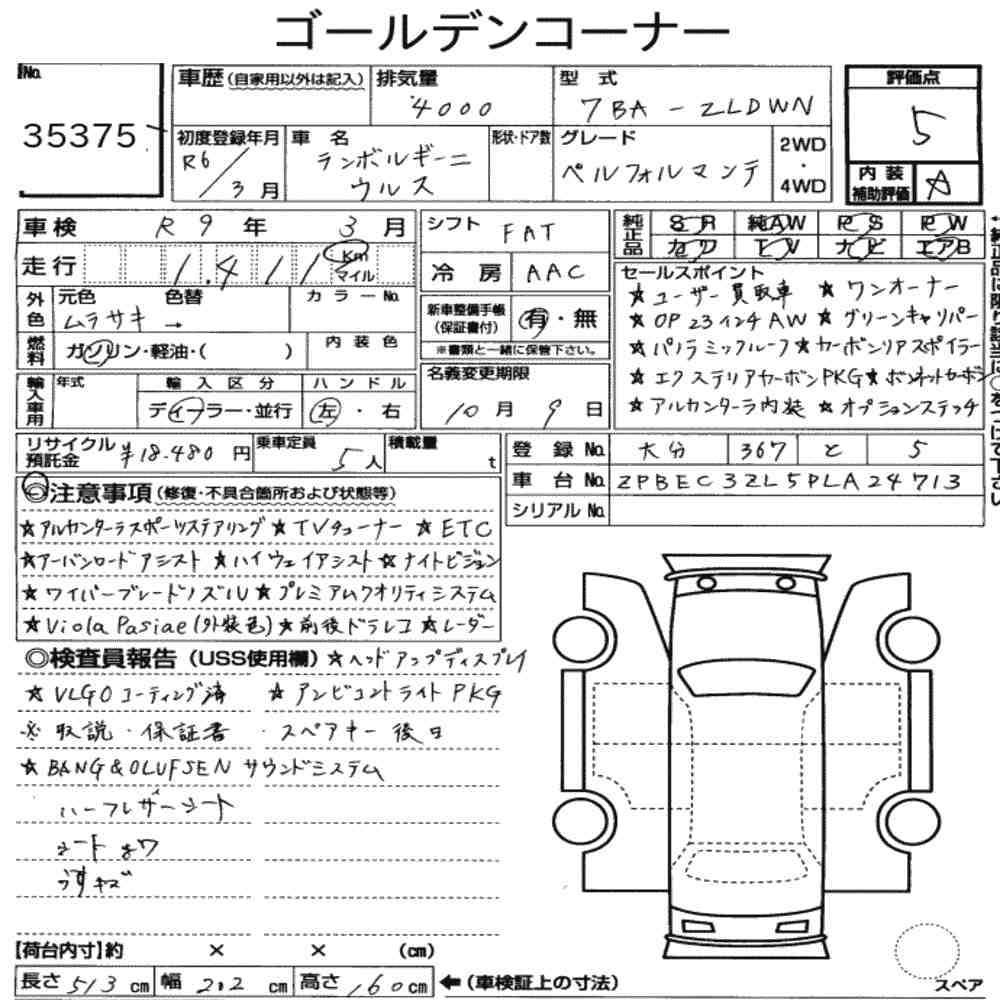 ゴールデンコーナー
No.
35375
車歴(自家用以外は記入)
排気量
4000
型 式
7BA - ZLDWN
評価点
5
初度登録年月
R6/3月
車 名
ランボルギーニ
ウルス
形状・ドア数
グレード
ペルフォルマンテ
2WD
・
4WD
内装
補助評価
A
車検 R 9 年 3 月
走行 1.411 Km
マイル
シフト FAT
冷 房 AAC
純正品
SR 純AW PS PW
カワ TV ナビ エアB
外色
元色 色替
ムラサキ →
カラーNo.
燃料
ガソリン・軽油・( )
内装色
新車整備手帳
(保証書付)
有・無
※書類と一緒に保管下さい。
セールスポイント
★ユーザー買取車 ★ワンオーナー
★OP23インチAW ★グリーンキャリパー
★パノラミックルーフ ★カーボンリアスポイラー
★エクステリアカーボンPKG ★ボンネットカーボン
★アルカンターラ内装 ★オプションステッチ
輸入車用
年式
輸入区分
ディーラー・並行
ハンドル
左・右
名義変更期限
10月 9日
リサイクル
預託金
¥18.480円
乗車定員
5人
積載量
t
登録No. 大分 367 と 5
車台No. ZPBEC3ZL5PLA24713
シリアルNo.
◎注意事項(修復・不具合箇所および状態等)
★アルカンターラスポーツステアリング ★TVチューナー ★ETC
★アーバンロードアシスト ★ハイウェイアシスト ★ナイトビジョン
★ワイパーブレードノズル ★プレミアムクオリティシステム
★Viola Pasiae(外装色) ★前後ドラレコ ★レーダー
◎検査員報告(USS使用欄) ★ヘッドアップディスプレイ
★VLGOコーティング済 ★アンビエントライトPKG
※取説・保証書・スペアキー後日
★BANG&OLUFSENサウンドシステム
ハーフレザーシート
シート
うすキズ
【荷台内寸】約 × × (cm)
長さ 513 cm 幅 202 cm 高さ 160 cm ←(車検証上の寸法)
スペア